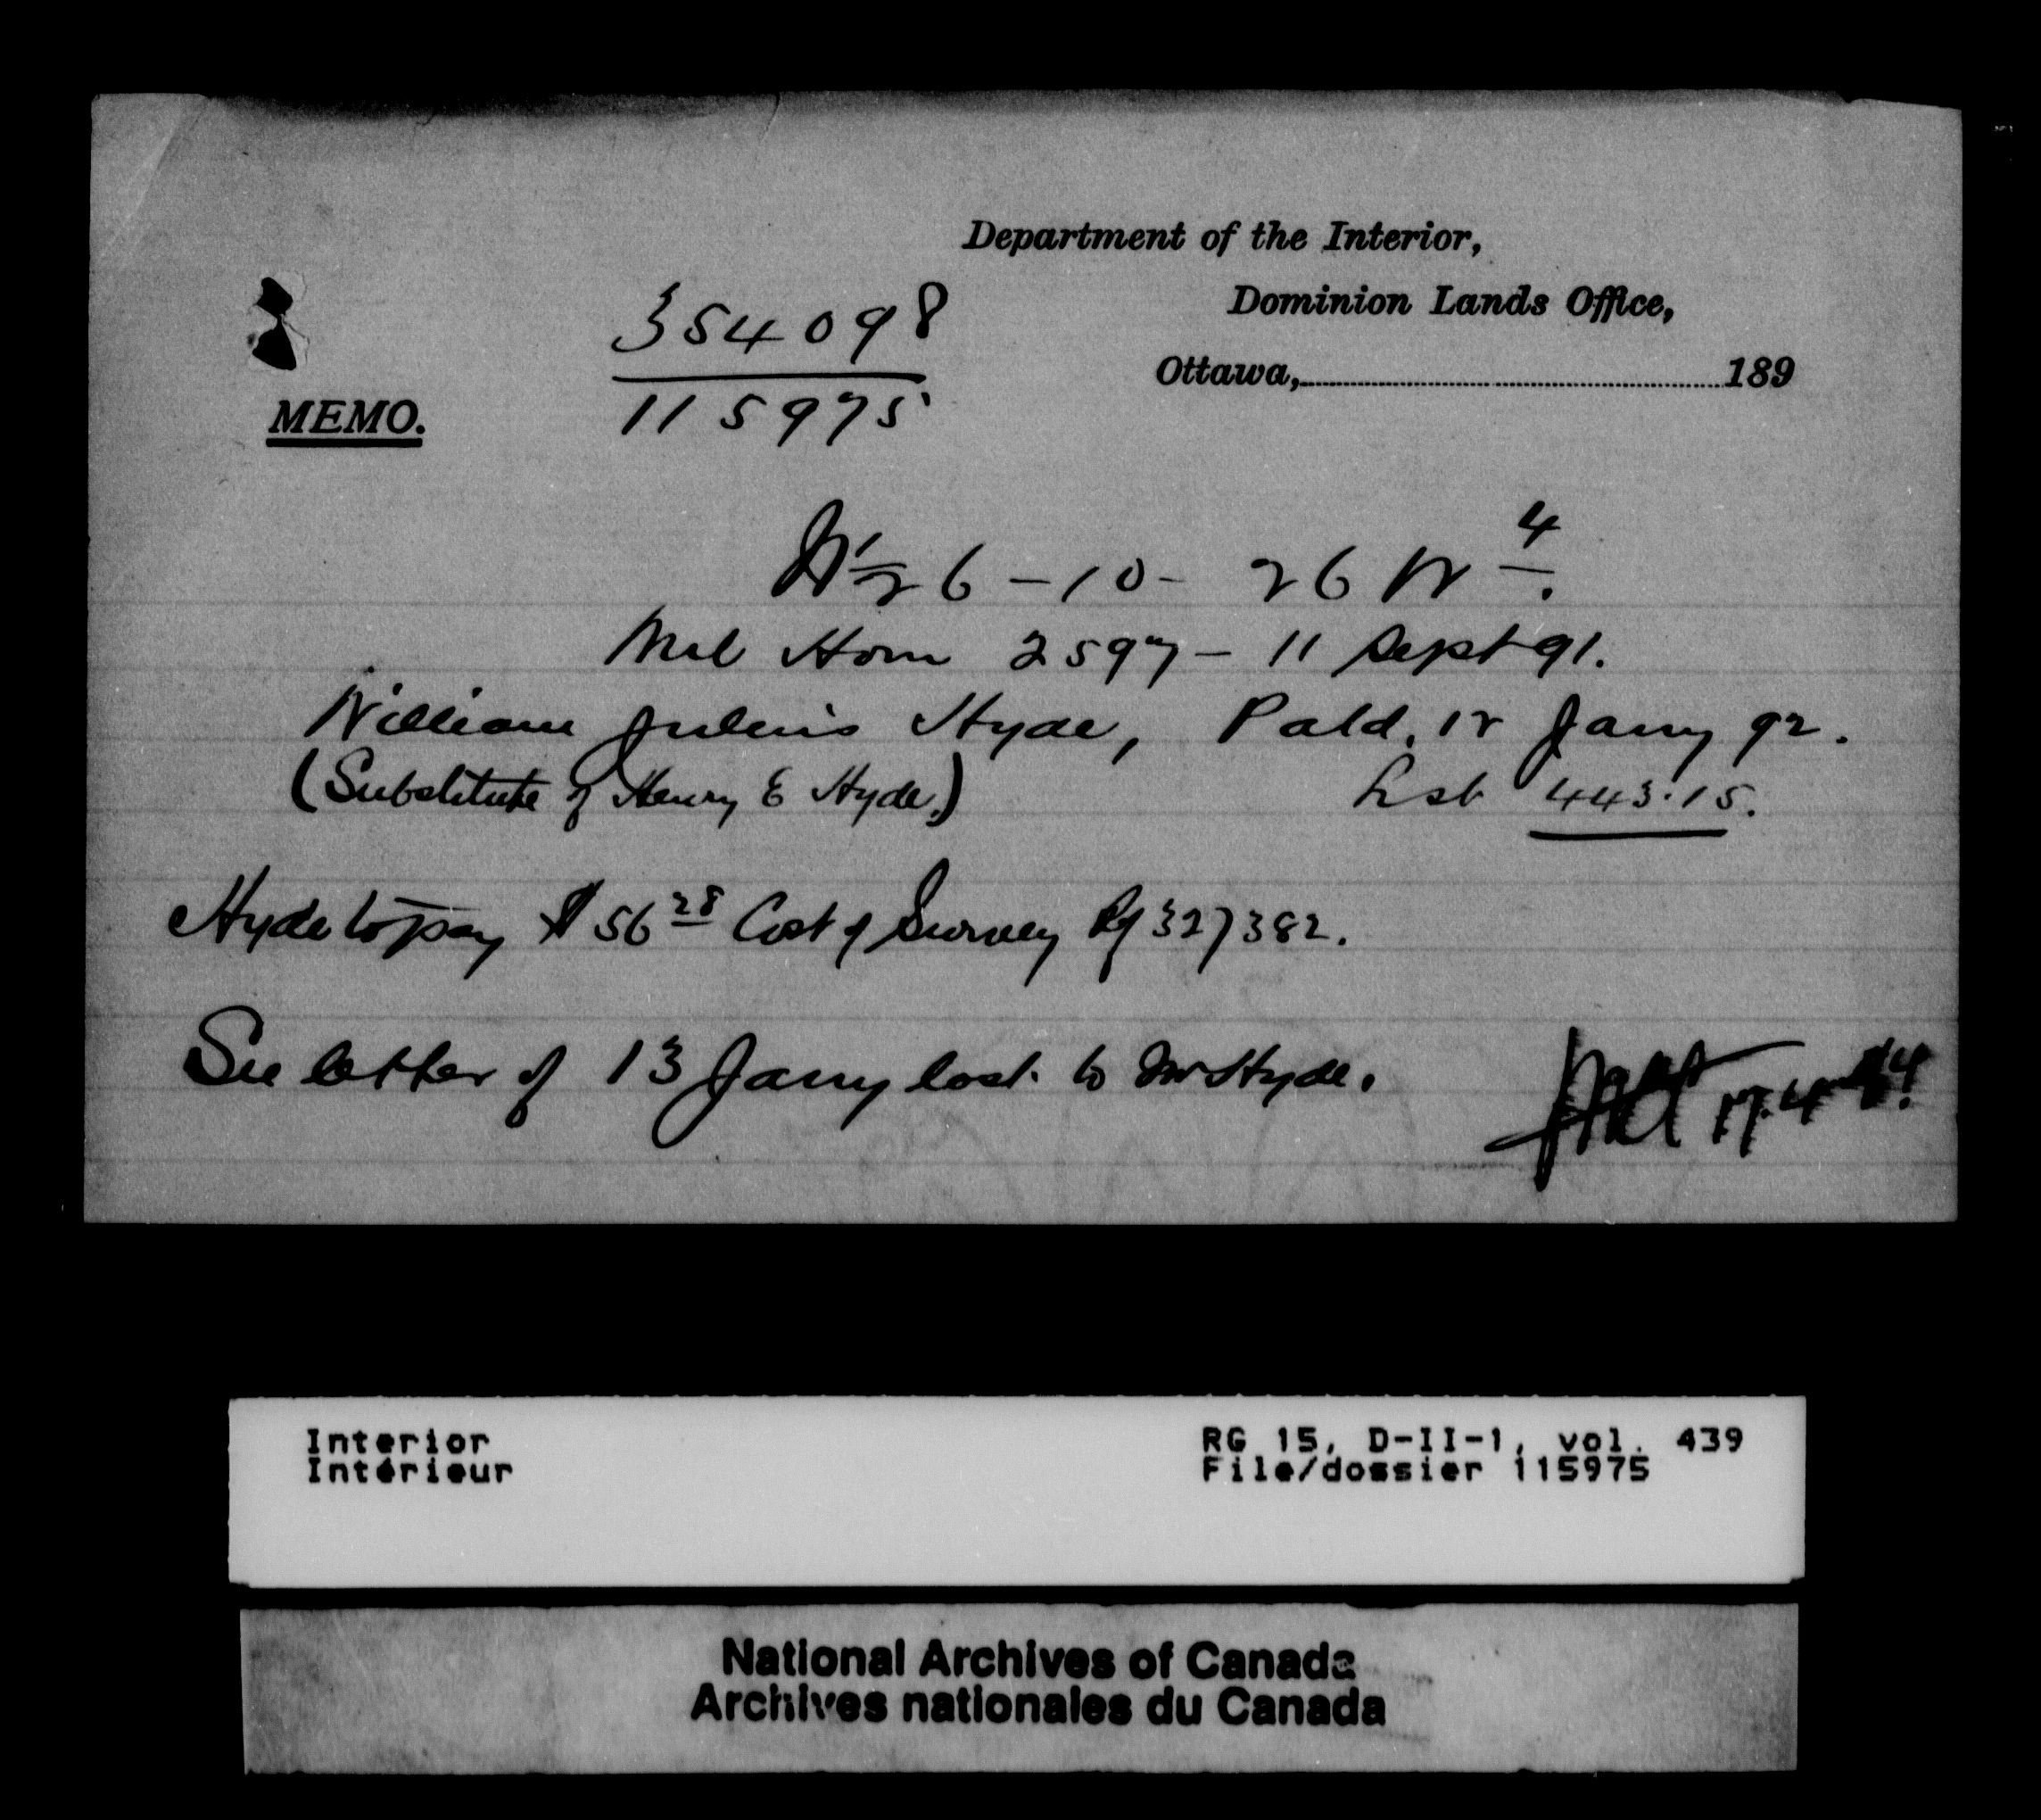 Department of the Interior,
Dominion Lands Office,
Ottawa, 189
MEMO.
354098
115975
½ 6 - 10 - 26 W 4.
Mil Hom 2597 - 11 Sept 91.
William Julius Hyde, Patd. 12 Jany 92.
(Substitute of Henry E Hyde.)
443.15.
Hyde to pay $56 28 Cost of Survey Rf 327382.
See letter of 13 Jany last to Mr Hyde.
17.4
Interior
Intérieur
RG 15, D-II-1, vol. 439
File/dossier 115975
National Archives of Canada
Archives nationales du Canada